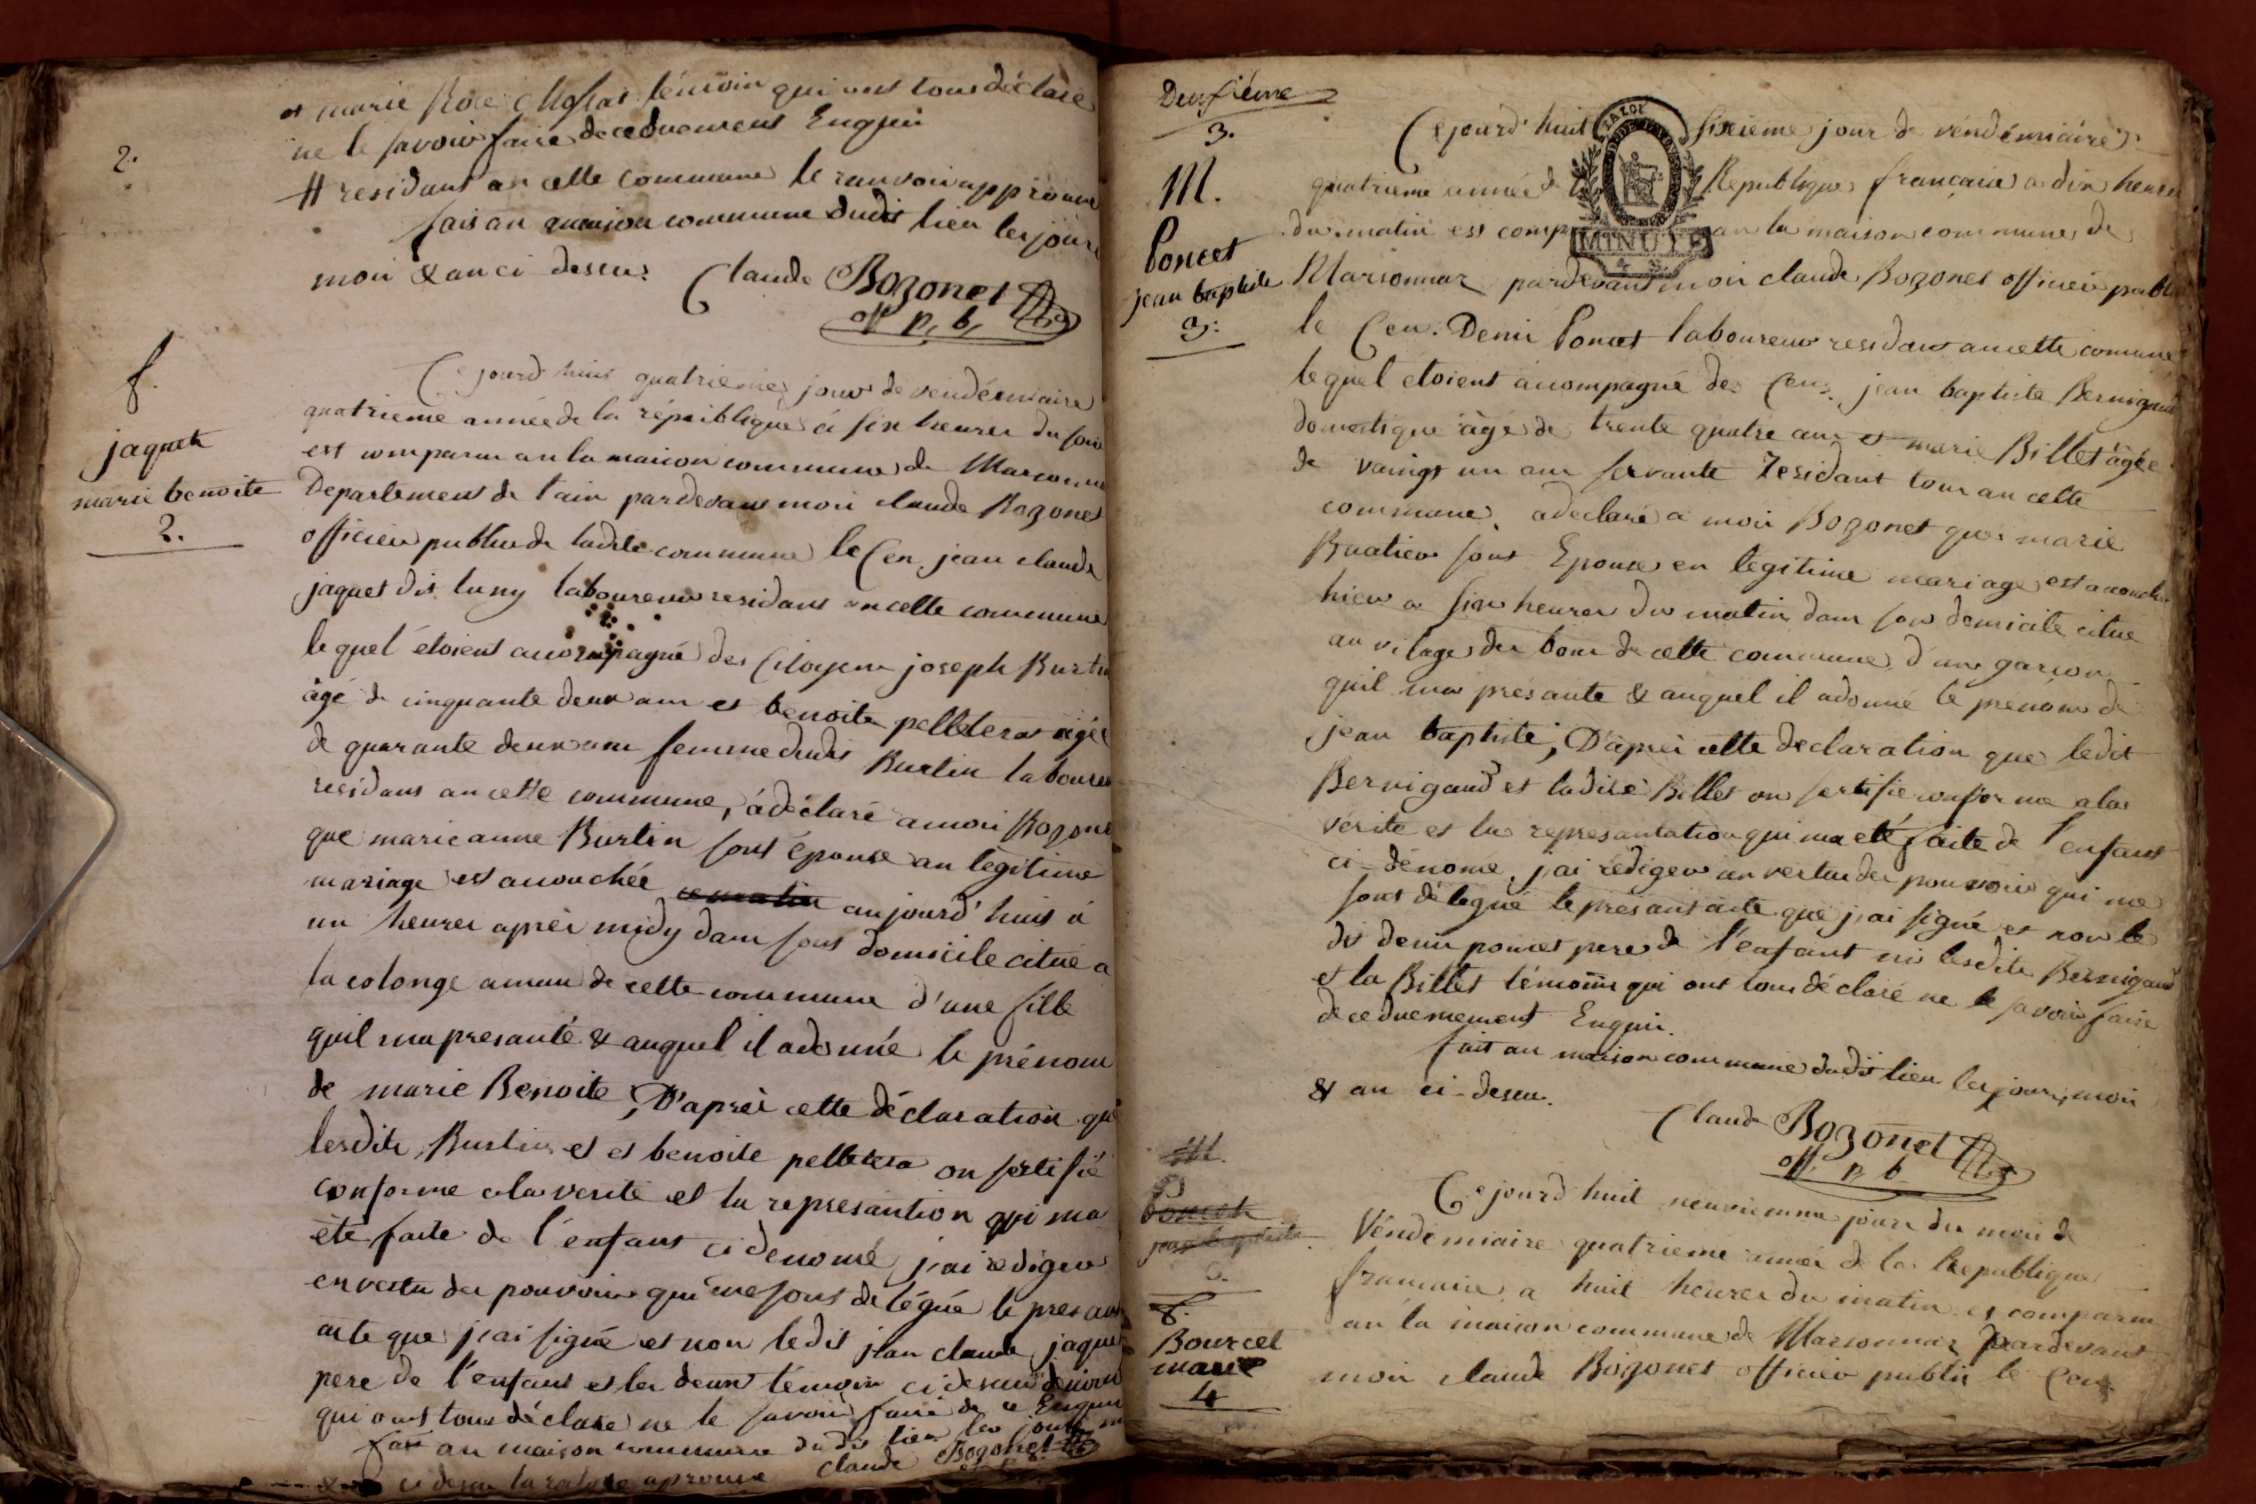 2.
et marie Roze témoin qui ont tous déclaré
ne le savoir faire de ce duement Enquis
# residant an cette commune le ranvoir approuvé
fais an maison commune dudit lieu les jour
moii & an ci dessus
Claude Bozonet
off p. b.
f.
jaquet
marie benoite
2.
Cejourd'huit quatrieme jour de vendémiaire
quatrieme année de la républiques à six heures du soir
est comparu an la maison commune de
Departement de l'ain pardevant moii claude Bozonet
officier public de ladite commune le Cen. jean claude
jaquet dit luny laboureur residant an cette commune
lequel étoient accompagné des Citoyens joseph
âgé de cinquante deux ans et benoite pelleteret agée
de quarante deux ans femme dudit Burtin
residant an cette commune, a déclaré a moii
que marie anne Burtin sont épouse an légitime
mariage est acouchée ce matin aujourd'huit à
un heures après midy dans sont domicile citué a
la colonge amau de cette commune d'une fille
quil ma presanté & auquel il adonné le prénom
de marie Benoite, D'après cette déclaration que
lesdits Burtin et et benoite on sertifié
conforme ala verité et la represantion qui ma
été faite de l'enfant ci denomé j'ai rediger
en vertu des pouvoirs qui me sont delégué le presant
acte que j'ai signé et non ledit jean claude jaquet
pere de l'enfant et les deux témoin ci desus
qui ont tous déclaré ne le savoir faire de ce Enquis
fait an maison commune dudit lieu les jour
ci desus la rature aprouvé Claude Bozonet
Deuxiéme
3.
M.
Poncet
jean baptiste
3.
Cejourd'huit sixieme jour de vendémiaire
quatrieme année de la Republique francaise a dix heures
du matin est comparu an la maison commune de
MINUTE
Marsonnaz pardevant moii claude Bozonet officier public
le Cen. Denis Poncet laboureur residant an cette comune
lequel étoient acompagné des Cens. jean baptiste Bernigaud
domestique âgé de trente quatre ans et marie Billet âgée
de vaingt un ans servante residant tous an cette
commune, adeclaré a moii Bozonet que marie
Buatier sont Epouse en legitime mariage est acouchée
hier a six heures du matin dans son domicile citué
au vilage des bour de cette commune d'une garson
quil ma présanté & auquel il adonné le prénom de
jean baptiste, D'après cette declaration que ledit
Bernigaud et ladite Billet on sertifié conforme ala
vérité et la represantation qui ma eté faite de l'enfant
ci-dénomé, j'ai rédiger an vertu des pouvoir qui me
sont délegué le présant acte que j'ai signé et non le
dit denis poncet pere de l'enfant ni lesdits Bernigaud
et la Billet témoins qui ont tous déclaré ne le savoir faire
de ce duemement Enquis.
fait an maison commune dudit lieu les jour, moii
& an ci-desus.
Claude Bozonet
off p b
M.
Poncet
jean baptiste
f.
Bourcet
marie
4
Cejourd'huit neuviemme jour du moii de
Véndemiaire quatrieme année de la Republique
francaise a huit heures du matin est comparu
an la maison commune de Marsonnaz pardevant
moii claude Bozonet officier public le Cen.